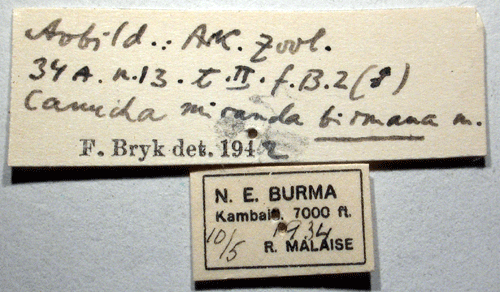 Avbild.: Ark. Zool.
34 A. n. 13. t. II. f. B. 2 (8)
Camicha miranda birmana m.
F. Bryk det. 1942
N. E. BURMA
Kambaiti, 7000 ft.
10/5 1934
R. MALAISE